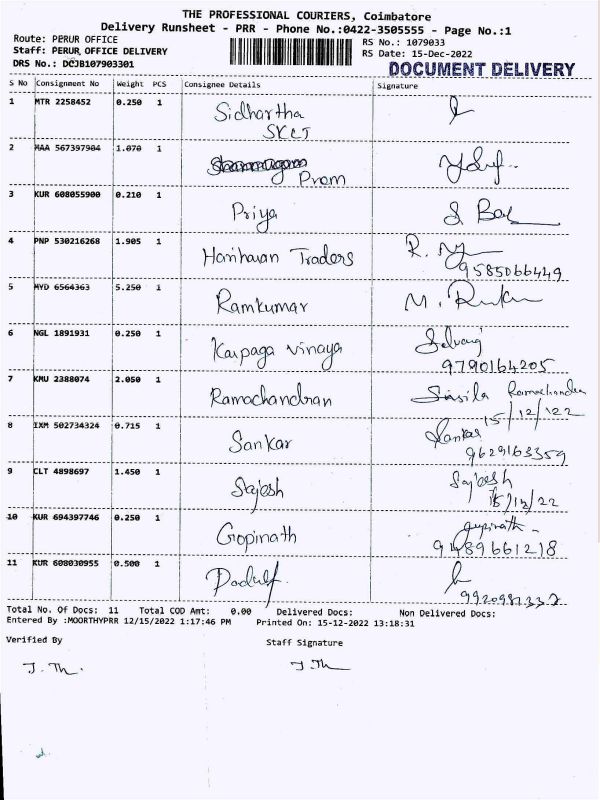 THE PROFESSIONAL COURIERS, Coimbatore
Delivery Runsheet - PRR - Phone No.:0422-3505555 - Page No.:1
Route: PERUR OFFICE
RS No.: 1079033
Staff: PERUR OFFICE DELIVERY
RS Date: 15-Dec-2022
DRS No.: DCJB107903301
DOCUMENT DELIVERY
S No Consignment No Weight PCS Consignee Details Signature
1 MTR 2258452 0.250 1 Sidhartha
SKCT
2 MAA 567397904 1.070 1
Prom
3 KUR 608055900 0.210 1 Priya
4 PNP 530216268 1.905 1 Harihavan Traders R.
9585066449
5 HYD 6564363 5.250 1 Ramkumar M.
6 NGL 1891931 0.250 1 Karpaga vinaya Selvaraj
9790164205
7 KMU 2388074 2.050 1 Ramachandran Ramachandra
15/12/22
8 IXM 502734324 0.715 1 Sankar Sankar
9629163359
9 CLT 4898697 1.450 1 Sajesh Sajeesh
15/12/22
10 KUR 694397746 0.250 1 Gopinath gupinath
9489661218
11 KUR 608030955 0.500 1
9920981337
Total No. Of Docs: 11 Total COD Amt: 0.00 Delivered Docs: Non Delivered Docs:
Entered By :MOORTHYPRR 12/15/2022 1:17:46 PM Printed On: 15-12-2022 13:18:31
Verified By Staff Signature
J. Th. J. Th